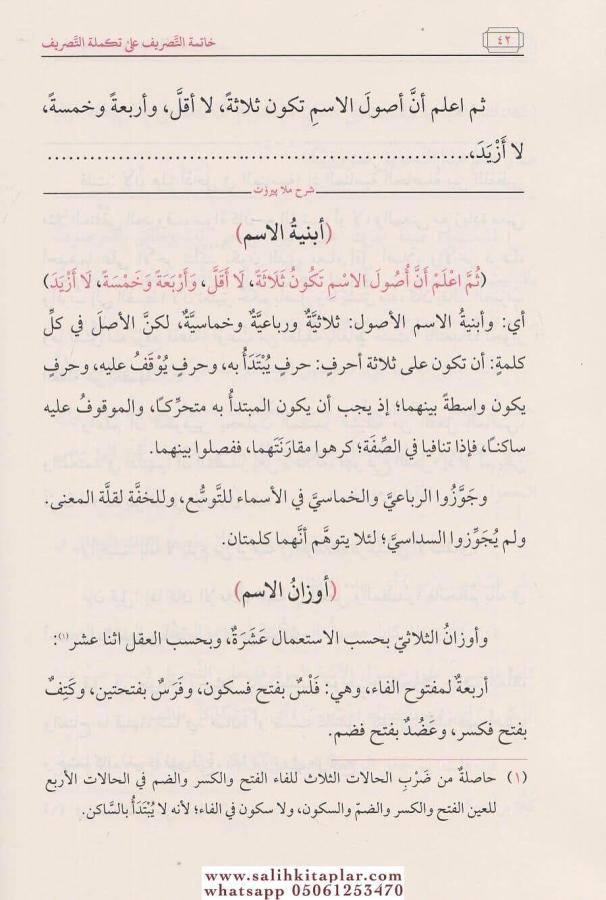 ٤٢
خاتمة التَّصريف على تكملة التَّصريف
ثم اعلم أنَّ أصولَ الاسمِ تكون ثلاثةً، لا أقلَّ، وأربعةً وخمسةً،
لا أَزْيَدَ،......................................................................
شرح ملا پیروت
(أبنيةُ الاسم)
(ثُمَّ اعْلَمْ أَنَّ أُصُولَ الاسْمِ تَكُونُ ثَلَاثَةً، لَا أَقَلَّ، وَأَرْبَعَةً وَخَمْسَةً، لَا أَزْيَدَ)
أي: وأبنيةُ الاسم الأصول: ثلاثيَّةٌ ورباعيَّةٌ وخماسيَّةٌ، لكنَّ الأصلَ في كلِّ
كلمةٍ: أن تكون على ثلاثة أحرف: حرفٍ يُبْتَدَأُ به، وحرفٍ يُوْقَفُ عليه، وحرفٍ
يكون واسطةً بينهما؛ إذ يجب أن يكون المبتدأُ به متحرِّكًا، والموقوفُ عليه
ساكنًا، فإذا تنافيا في الصِّفَة؛ كرهوا مقارَنَتَهما، ففصلوا بينهما.
وجَوَّزُوا الرباعيَّ والخماسيَّ في الأسماء للتَّوسُّع، وللخفَّة لقلَّة المعنى.
ولم يُجَوِّزوا السداسيَّ؛ لئلا يتوهَّم أنَّهما كلمتان.
(أوزانُ الاسم)
وأوزانُ الثلاثيّ بحسب الاستعمال عَشَرَةٌ، وبحسب العقل اثنا عشر(١):
أربعةٌ لمفتوح الفاء، وهي: فَلْسٌ بفتح فسكون، وفَرَسٌ بفتحتين، وكَتِفٌ
بفتح فكسر، وعَضُدٌ بفتح فضم.
(١) حاصلةٌ من ضَرْبِ الحالات الثلاث للفاء الفتح والكسر والضم في الحالات الأربع
للعين الفتح والكسر والضمّ والسكون، ولا سكون في الفاء؛ لأنه لا يُبْتَدَأُ بالسَّاكن.
www.salihkitaplar.com
whatsapp 05061253470